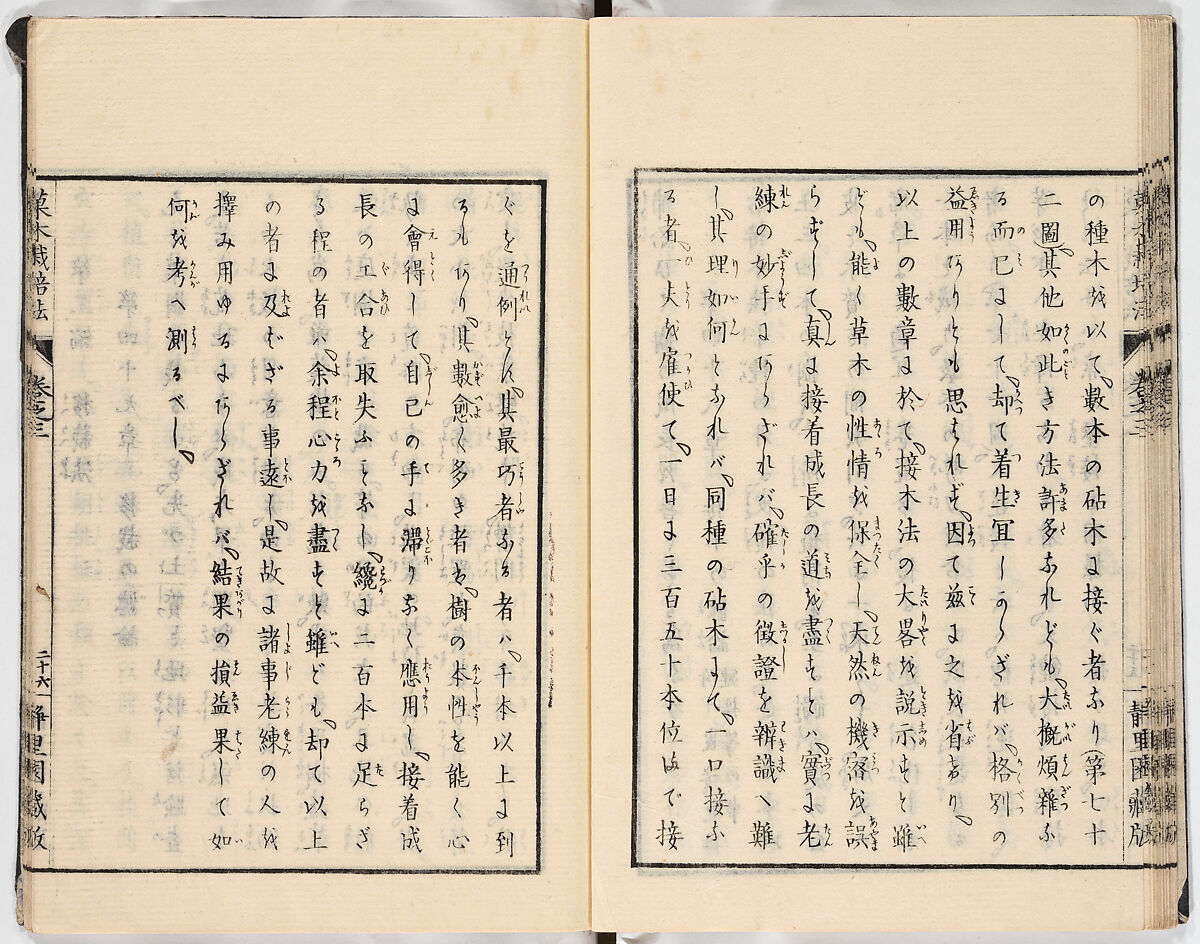 の種木を以て、數本の砧木に接ぐ者なり(第七十
二圖)其他如此き方法許多なれども、大概煩雑な
る而已にして、却て着生冝しからざれバ、格別の
益用ありとも思はれず、因て茲に之を省けり、
以上の數章に於て、接木法の大畧を説示すと雖
ども、能く草木の性情を保全し、天然の機密を誤
らずして、真に接着成長の道を盡すとハ、實に老
練の妙手にあらざれバ、確乎の徴證を辨識へ難
し、其理如何となれバ、同種の砧木にて、一口接な
る者、一夫を雇使て、一日に三百五十本位迠で接
ぐを通例とす、其最巧者なる者ハ、千本以上に到
るもあり、其數愈く多き者は、樹の本性を能く心
に會得して、自己の手に滯りなく應用し、接着成
長の工合を取失ふことなし、纔に二百本に足らざ
る程の者は、余程心力を盡すと雖ども、却て以上
の者に及ばざる事遠し、是故に諸事老練の人を
擇み用ゆるにあらざれバ、結果の損益果して如
何を考へ測るべし、
菓木栽培法
卷之三
二十六
静里園藏版
卷之三
静里園藏版